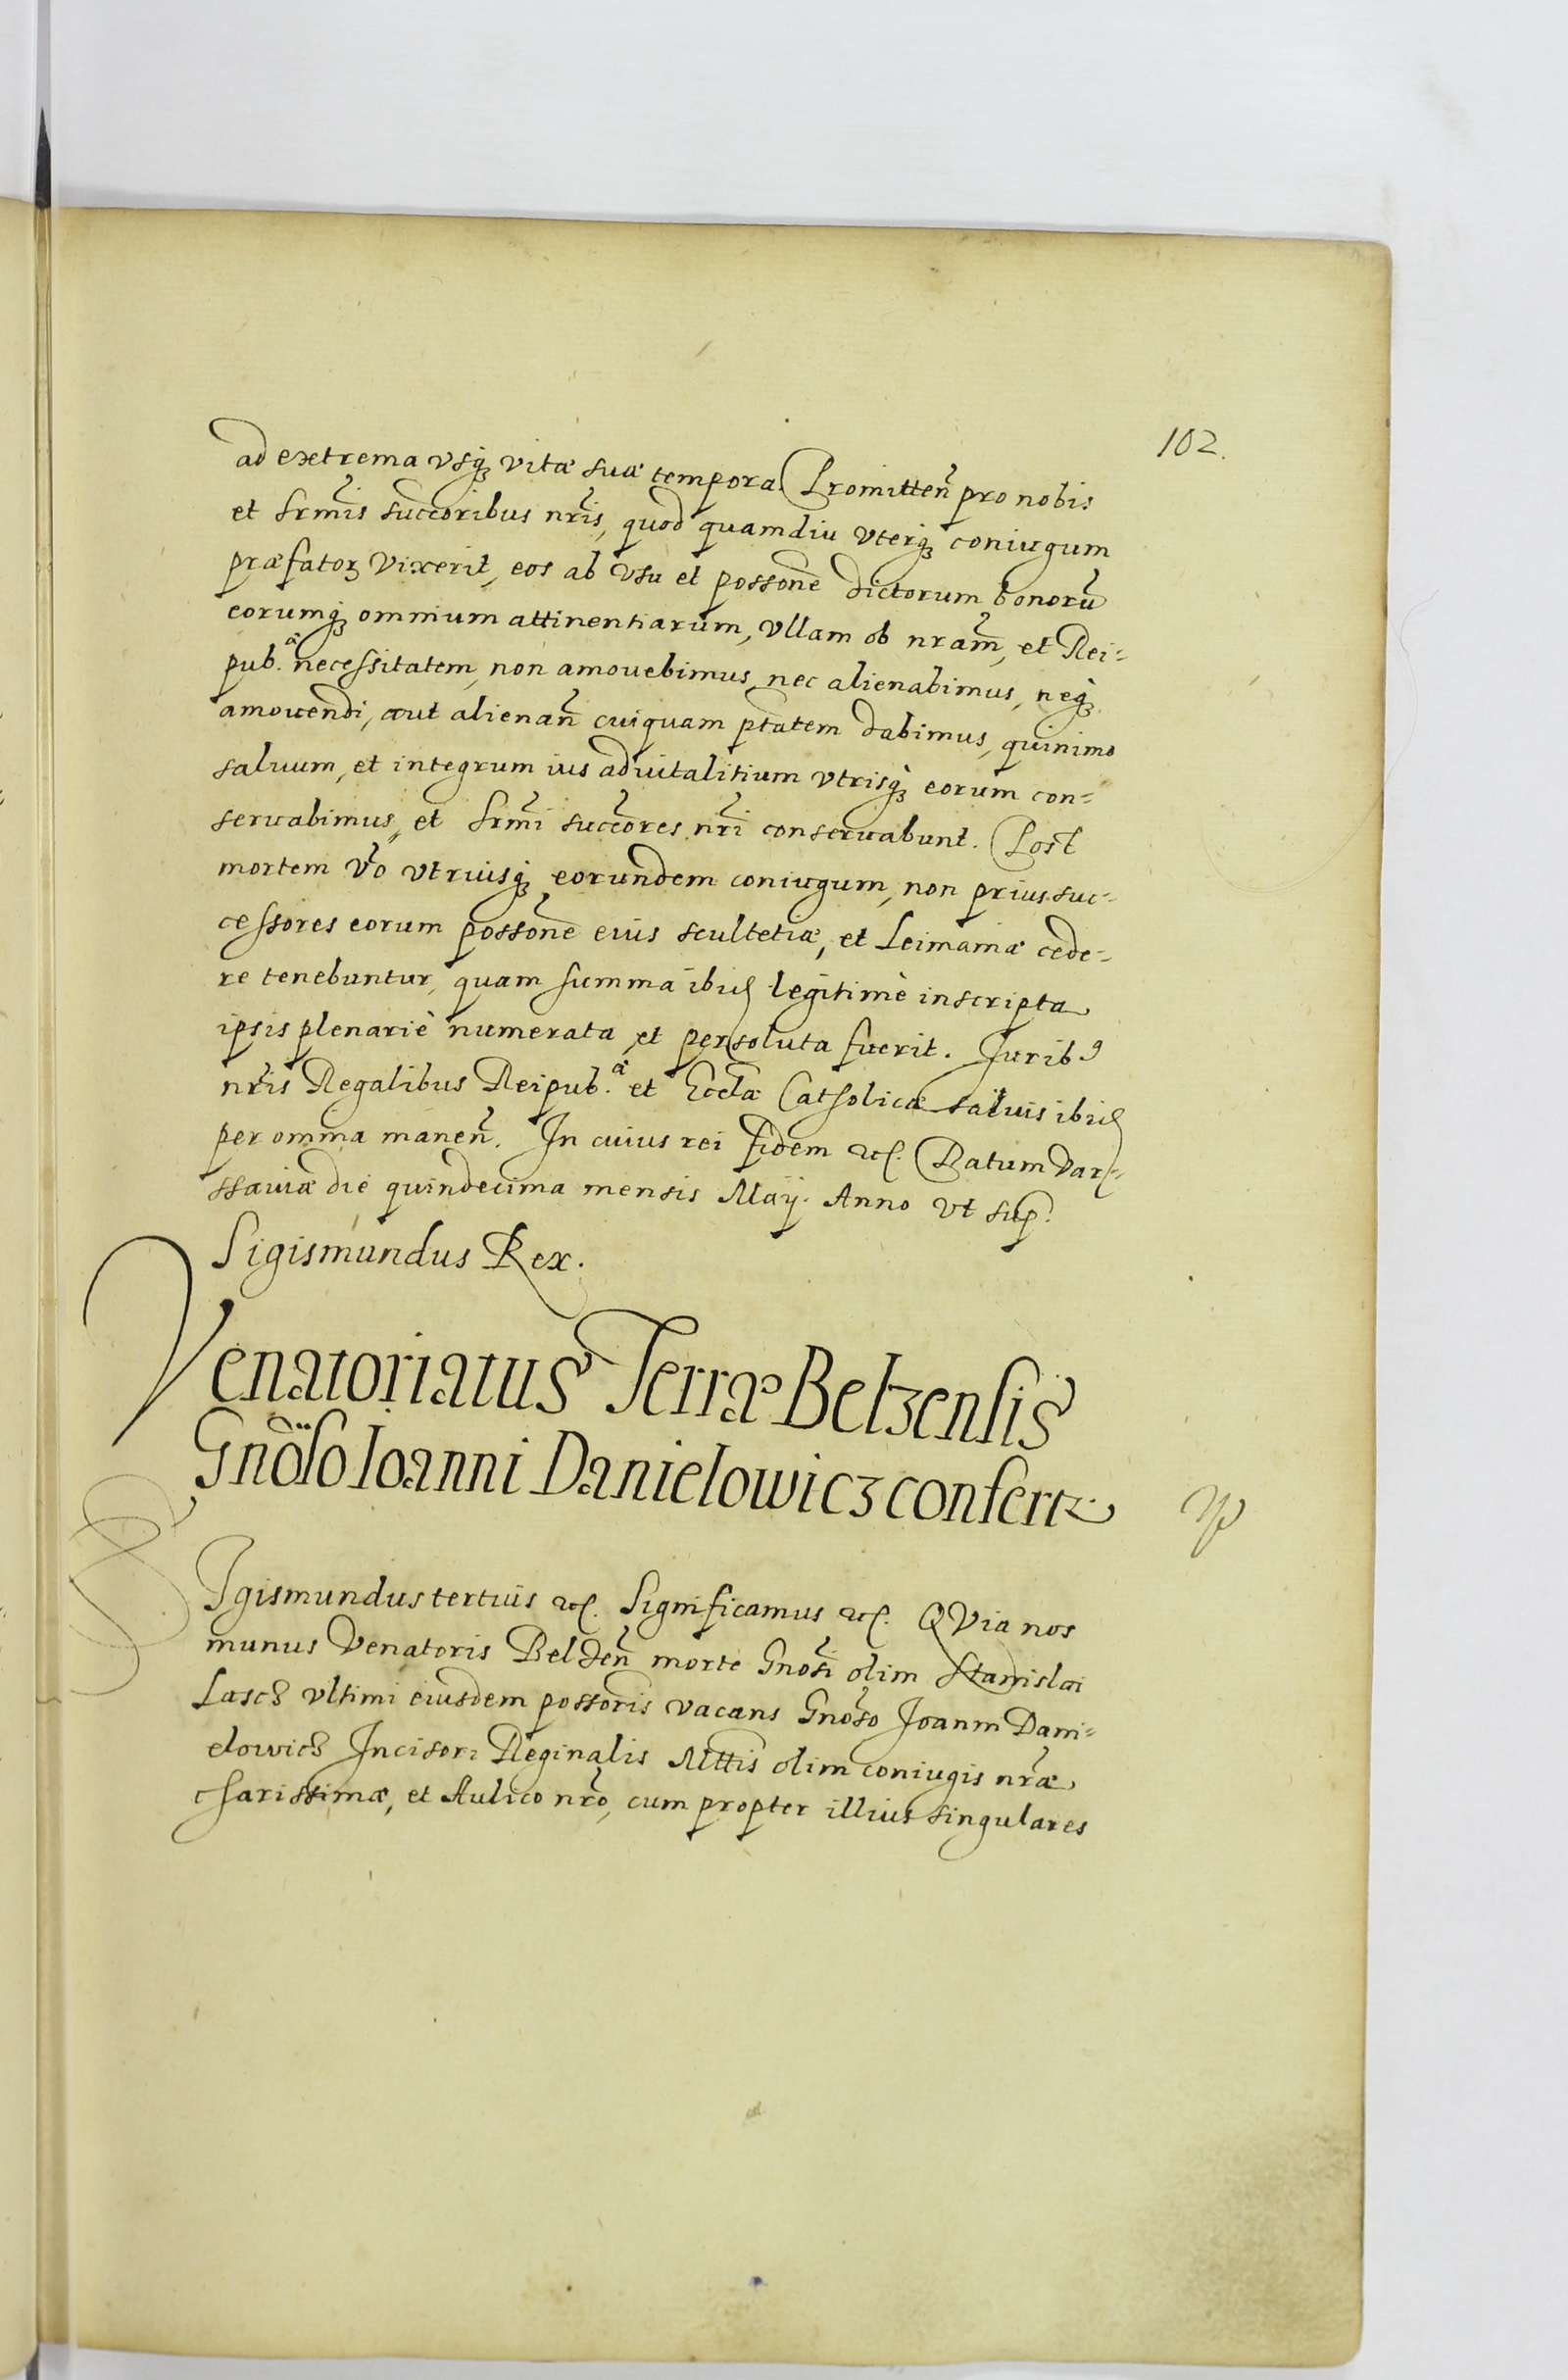 102.
ad extrema vsq₃ vitæ suæ tempora. Promitten̄ pro nobis
et Srm̄is succ̄oribus nr̄is, quod quamdiu vterq₃ coniugum
præfatoꝝ vixerit, eos ab vsu et posson̄e dictorum bonorū
eorumq₃ omnium attinentiarum, vllam ob nram̄, et Rei-
pub.ᵃ̂ necessitatem, non amouebimus, nec alienabimus, neq₃
amouendi, aut alienan̄ cuiquam ptātem dabimus, quinimo
saluum, et integrum ius aduitalitium vtrisq₃ eorum con-
seruabimus, et Srm̄i succ̄ores nr̄i conseruabunt. Post
mortem v̄o vtriusq₃ eorundem coniugum, non prius suc-
cessores eorum posson̄e eius scultetiæ, et Leimaniæ cede-
re tenebuntur, quam summa ibid legitimè inscripta
ipsis plenariè numerata, et persoluta fuerit. Jurib⁹
nr̄is Regalibus Reipub.ᵃ̂ et Eccl̄æ Catholicæ saluis ibid
per omnia manen̄. In cuius rei fidem etc. Datum Var-
ssauiæ die quindecima mensis Maÿ. Anno vt sup̄.
Sigismundus Rex.
Venatoriatus Terræ Belzensis
Gnōso Ioanni Danielowicz confertᵣ
SIgismundus tertius etc. Significamus etc. QVia nos
munus Venatoris Belzen̄ morte Gnosī olim Stanislai
Lascz vltimi eiusdem possōris vacans Gnōso Joanni Dani-
elowicz Incisori Reginalis Mtt̄is olim coniugis nr̄æ
charissimæ, et Aulico nr̄o, cum propter illius singulares